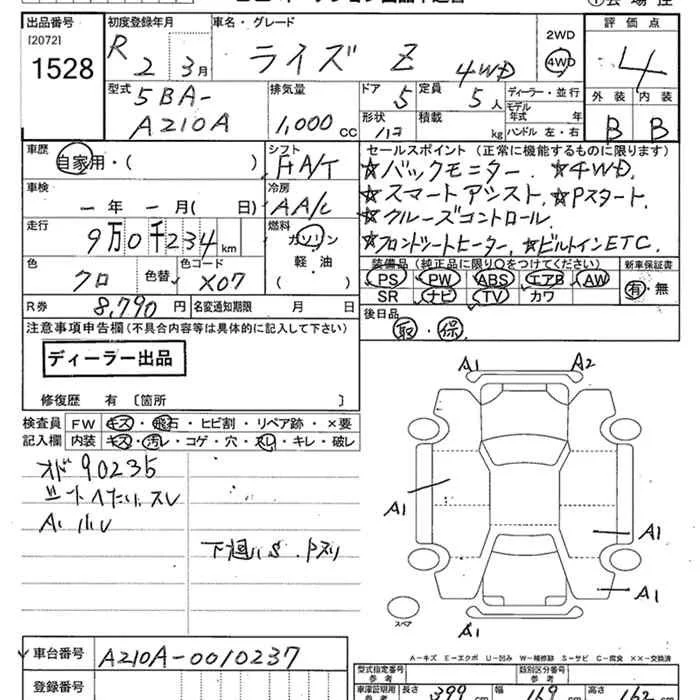 出品番号 初度登録年月 車名・グレード 評価点
[2072] R 2 3月 ライズ Z 4WD 2WD 4WD 4
1528
型式 排気量 ドア 定員 ディーラー・並行 外装 内装
5BA- 5 5人 モデル年式 年
A210A 1,000cc 形状 積載 kg ハンドル 左・右 B B
車歴 シフト セールスポイント (正常に機能するものに限ります)
自家用・( ) FA/T ☆バックモニター. ☆4WD.
車検 冷房 ☆スマートアシスト. ☆Pスタート.
一年 一月( 日) AA/C ☆クルーズコントロール
走行 燃料
9万0千234km ガソリン ☆フロントシートヒーター. ☆ビルトインETC.
色 色替 色コード 軽・油 装備品 (純正品に限り○をつけてください) 新車保証書
クロ X07 ( ) PS PW ABS エアB AW 有・無
SR ナビ TV カワ
R券 8,790円 名変通知期限 月 日 後日品
取・保
注意事項申告欄(不具合内容等は具体的に記入して下さい)
ディーラー出品
修復歴 有 〔箇所 〕
検査員 FW キズ・飛石・ヒビ割・リペア跡・×要
記入欄 内装 キズ・汚レ・コゲ・穴・スレ・キレ・破レ
オド90235
A1 A2
A1
A1
A1
A1
スペア
車台番号 A210A-0010237
登録番号
A-キズ E-エクボ U-凹み W-補修跡 S-サビ C-腐食 ××-交換済
型式指定番号 参考 類別区分番号 参考
車庫証明用 参考 長さ 399cm 幅 169cm 高さ 162cm